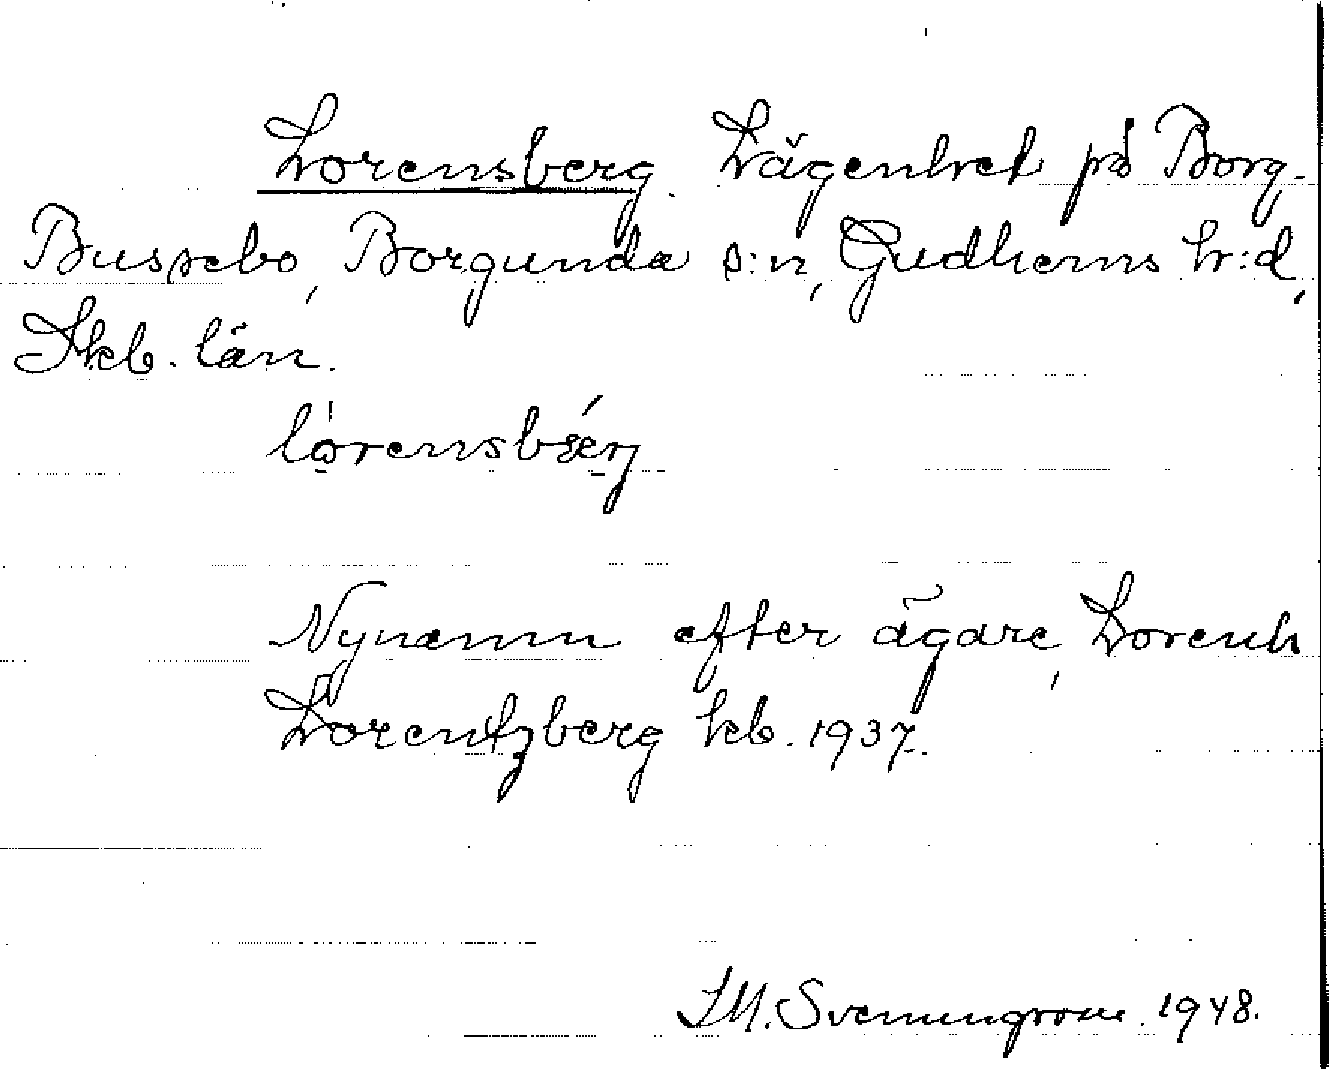 Lorensberg. Lägenhet på Borg-
Bussebo, Borgunda s:n, Gudhems h:d,
Skb. län.
lòrensbærj
Nynamn efter ägare, Lorentz
Lorentzberg kb. 1937.
1948.